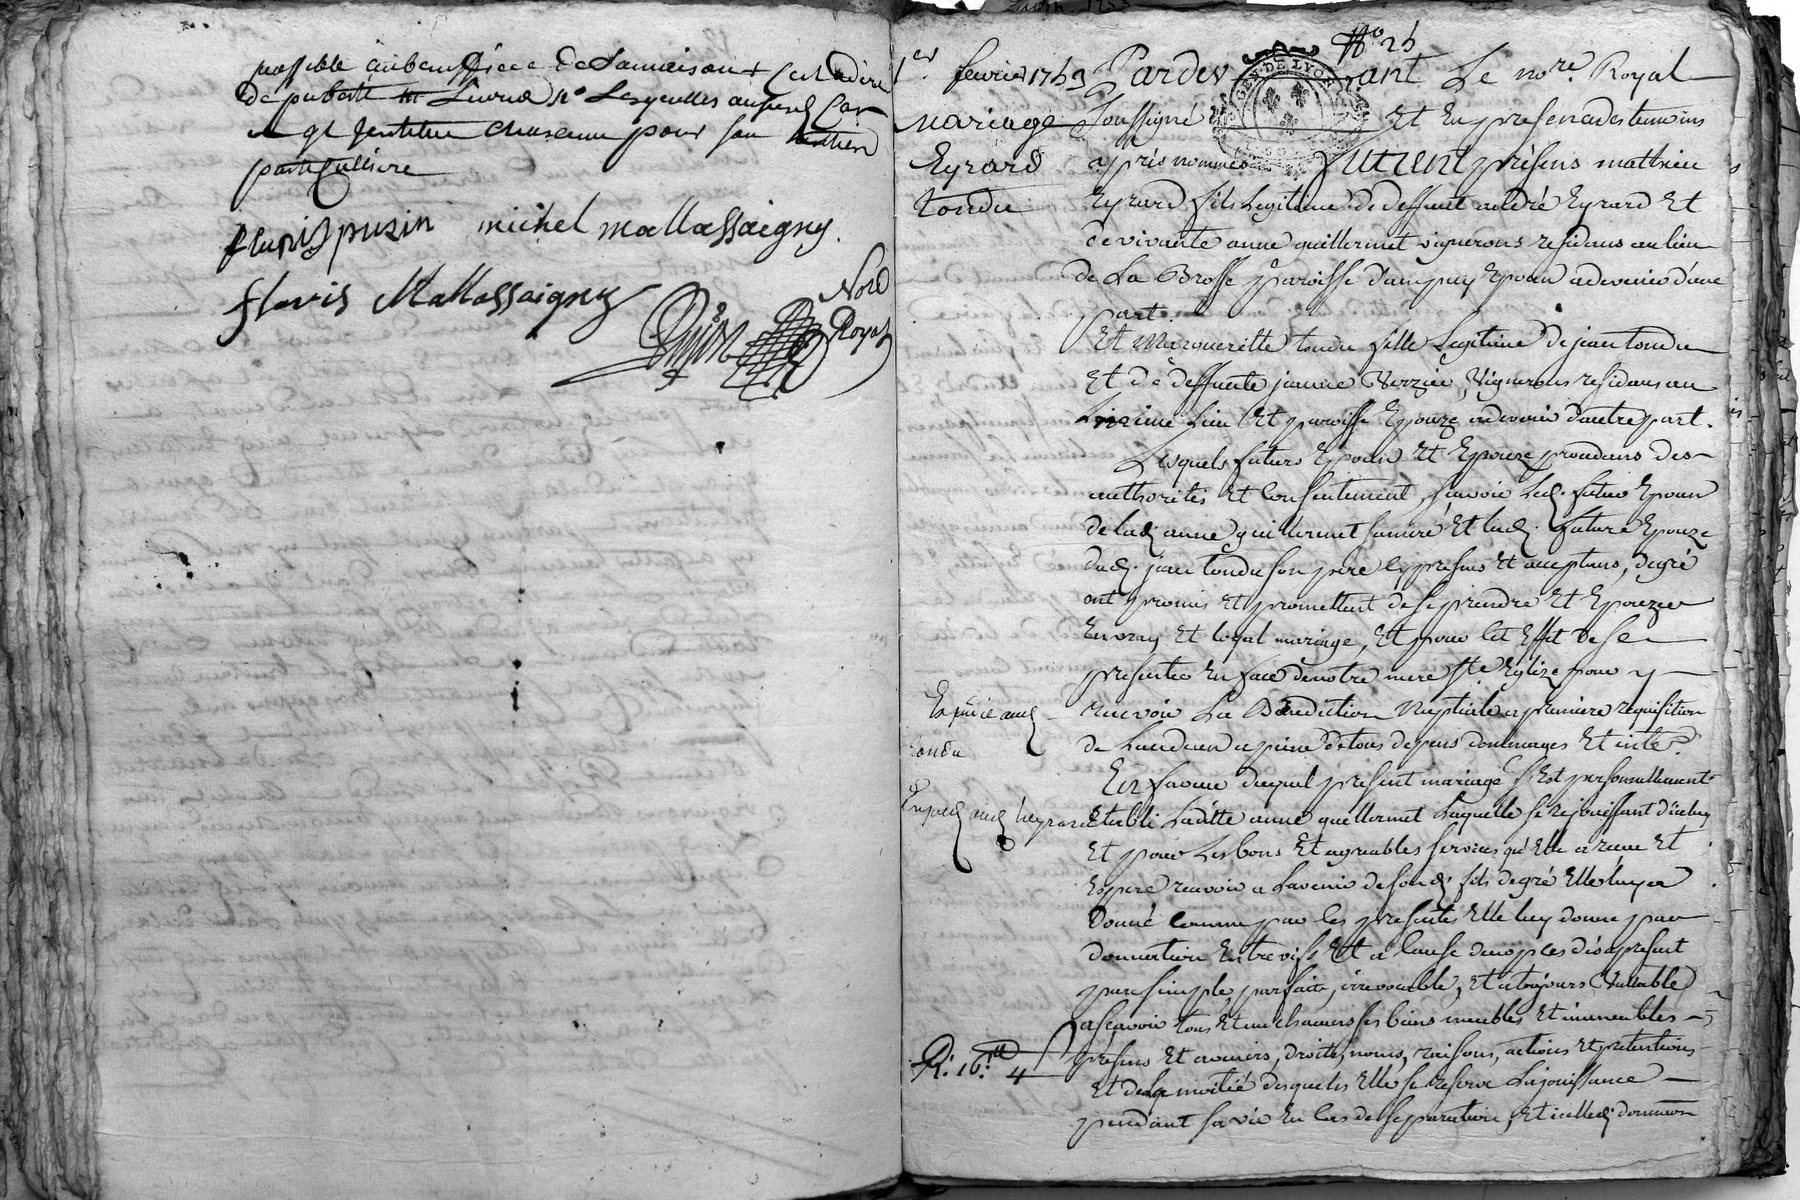 possible au beneffice de Samaison
de puberté Lesquelles
chascune pour Son
particulliere
fleuris pusin michel mallassaigny.
fleuris Mallassaigny
Royal
No 25
1er fevrier 1753 Pardevant Le nore. Royal
mariage Soussigné Et En presence des temoins
Eyrard apprès nommes furent présens mathieu
tondu Eyrard fils Legitime de deffunt andré Eyrard Et
de vivante anne guillermet vignerons residans au lieu
de La Brosse paroisse d'ampuy Epoux advenir d'une
part.
Et Margueritte tondu fille Legitime de jean tondu
Et de deffunte jeanne Verzier, Vignerons residans au
même Lieu Et paroisse Epouze advenir d'autre part.
Lesquels futurs Epoux Et Epouze procedans des
authorités Et Consentement, sçavoir Led. futur Epoux
de lad. anne guillermet sa mere Et lad. future Epouze
dud. jean tondu son pere Cy presens Et acceptans, de gré
ont promis Et promettent de se prendre Et Epouzer
En vray Et loyal mariage, Et pour Cet Effet de se
presenter En face de notre mere Ste Eglize pour y
Expedié aud. recevoir La Benediction Nuptiale a premiere requisition
tondu de L'un d'eux a peine de tous depens dommages Et inter.
En faveur duquel present mariage S'Est personnellement
Expedié aud. heyrard Etabli Laditte anne guillermet Laquelle se rejouissant d'iceluy
Et pour Les bons Et agreables services qu'Elle a receu Et
Espere recevoir a L'avenir de son d. fils de gré Elle luy a
Donné comme par les presentes Elle luy donne par
donnation Entre vifs Et a Cause de nopces dès apresent
pure simple, parfaite, irrevocable, Et a toujours Vallable
a sçavoir tous Et un chacuns ses biens meubles Et immeubles
presens Et avenirs, droits, noms, raisons, actions Et pretentions
Et de la moitié desquels Elle se reserve La jouissance
pendant sa vie En cas de separation, Et icelled. donnation